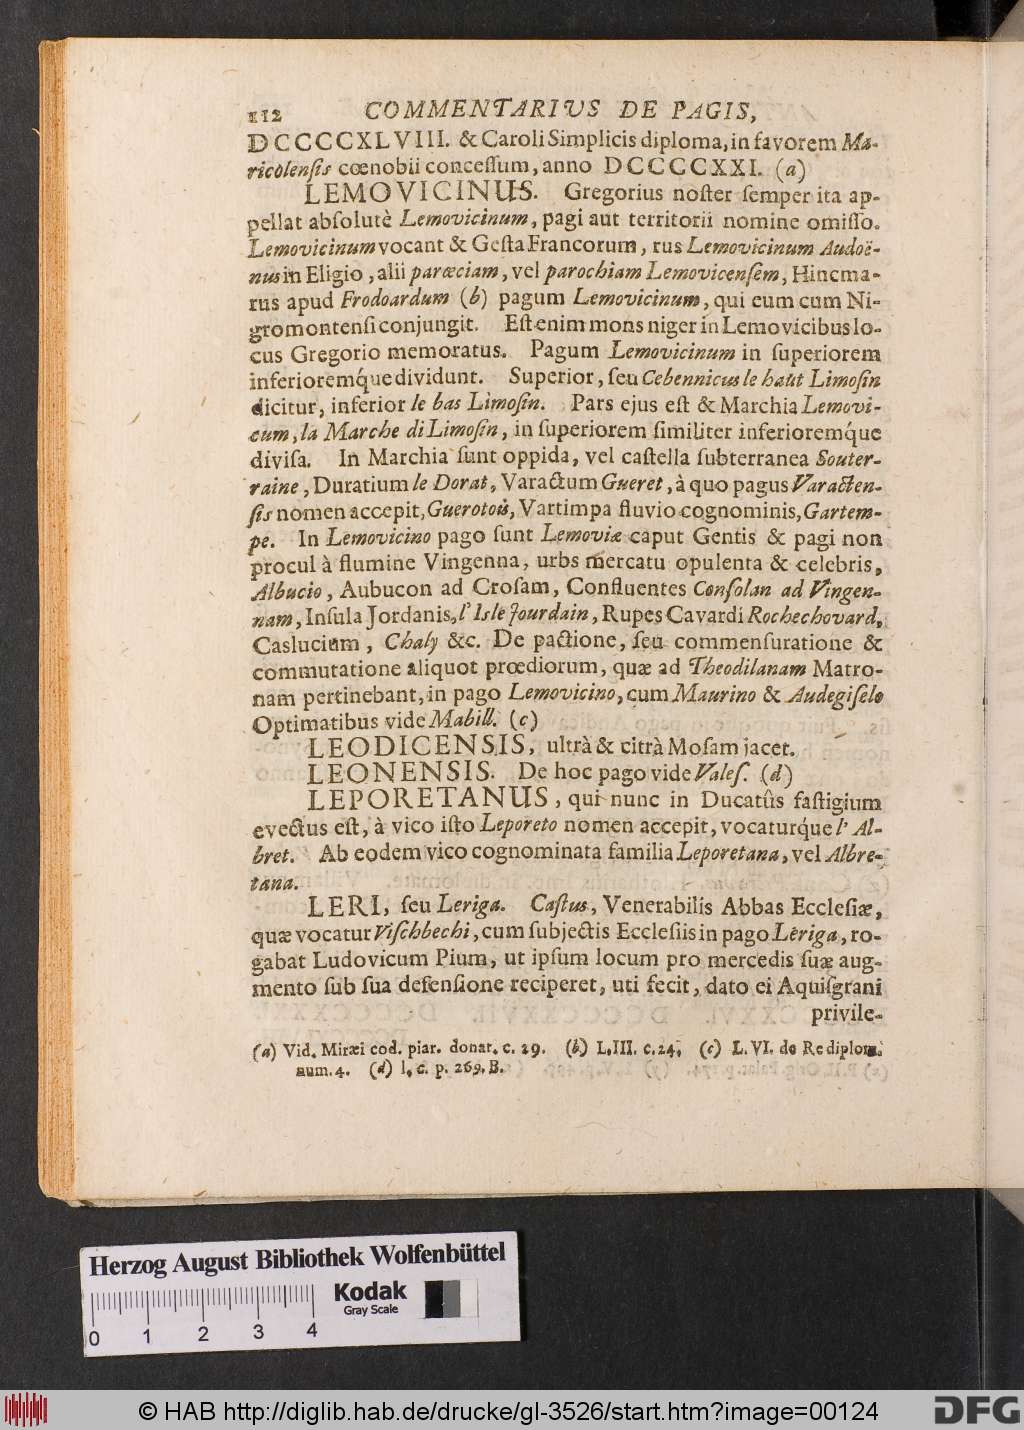 112 COMMENTARIVS DE PAGIS,
DCCCCXLVIII. & Caroli Simplicis diploma, in favorem Ma-
ricolensis cœnobii concessum, anno DCCCCXXI. (a)
LEMOVICINUS. Gregorius noster semper ita ap-
pellat absolutè Lemovicinum, pagi aut territorii nomine omisso.
Lemovicinum vocant & Gesta Francorum, rus Lemovicinum Audoë-
nus in Eligio, alii parœciam, vel parochiam Lemovicensem, Hincma-
rus apud Frodoardum (b) pagum Lemovicinum, qui eum cum Ni-
gromontensi conjungit. Est enim mons niger in Lemovicibus lo-
cus Gregorio memoratus. Pagum Lemovicinum in superiorem
inferioremq́ue dividunt. Superior, seu Cebennicus le haut Limosin
dicitur, inferior le bas Limosin. Pars ejus est & Marchia Lemovi-
cum, la Marche di Limosin, in superiorem similiter inferioremq́ue
divisa. In Marchia sunt oppida, vel castella subterranea Souter-
raine, Duratium le Dorat, Varactum Gueret, à quo pagus Varacten-
sis nomen accepit, Guerotois, Vartimpa fluvio cognominis, Gartem-
pe. In Lemovicino pago sunt Lemoviæ caput Gentis & pagi non
procul à flumine Vingenna, urbs mercatu opulenta & celebris,
Albucio, Aubucon ad Crosam, Confluentes Consolan ad Vingen-
nam, Insula Jordanis, l'Isle Jourdain, Rupes Cavardi Rochechovard,
Caslucium, Chaly &c. De pactione, seu commensuratione &
commutatione aliquot prœdiorum, quæ ad Theodilanam Matro-
nam pertinebant, in pago Lemovicino, cum Maurino & Audegiselo
Optimatibus vide Mabill. (c)
LEODICENSIS, ultrà & citrà Mosam jacet.
LEONENSIS. De hoc pago vide Vales. (d)
LEPORETANUS, qui nunc in Ducatûs fastigium
evectus est, à vico isto Leporeto nomen accepit, vocaturq́ue l' Al-
bret. Ab eodem vico cognominata familia Leporetana, vel Albre-
tana.
LERI, seu Leriga. Castus, Venerabilis Abbas Ecclesiæ,
quæ vocatur Vischbechi, cum subjectis Ecclesiis in pago Leriga, ro-
gabat Ludovicum Pium, ut ipsum locum pro mercedis suæ aug-
mento sub sua defensione reciperet, uti fecit, dato ei Aquisgrani
privile-
(a) Vid. Miræi cod. piar. donat. c. 29. (b) L. III. c. 24. (c) L. VI. de Re diplom.
num. 4. (d) l. c. p. 269. B.
Herzog August Bibliothek Wolfenbüttel
Kodak
Gray Scale
0 1 2 3 4
© HAB http://diglib.hab.de/drucke/gl-3526/start.htm?image=00124
DFG